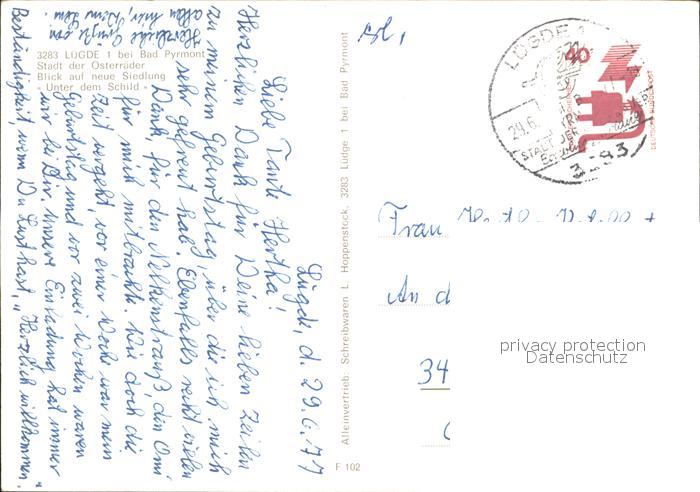 3283 LÜGDE 1 bei Bad Pyrmont
Stadt der Osterräder
Blick auf neue Siedlung
"Unter dem Schild"
Lügde, d. 29.6.77
Liebe Tante Hertha!
Herzlichen Dank für Deine lieben Zeilen
zu meinem Geburtstag, über die ich mich
sehr gefreut hab. Ebenfalls recht vielen
Dank, für den Nelkenstrauß, den Omi
für mich mitbrachte. Wie doch die
Zeit vergeht, vor einer Woche war mein
Geburtstag und vor zwei Wochen waren
wir bei Dir. Unsere Einladung hat immer
Beständigkeit, wenn Du Lust hast, "Herzlich willkommen."
Herzliche Grüße von
allen hier,
Alleinvertrieb: Schreibwaren L. Hoppenstock, 3283 Lüdge 1 bei Bad Pyrmont
F 102
LÜGDE 1
29.6.
STADT DER
3283
40
DEUTSCHE BUNDESPOST
Frau
An d
34
privacy protection
Datenschutz